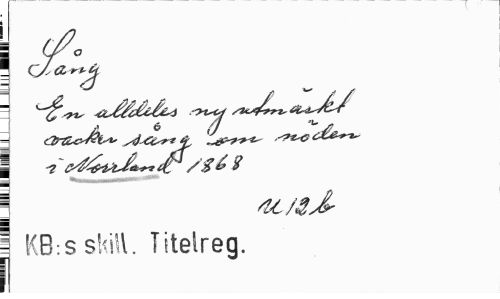 Sång
En alldeles ny utmäskt
vacker sång om nöden
i Norrland 1868
U 12 b
KB:s skill. Titelreg.